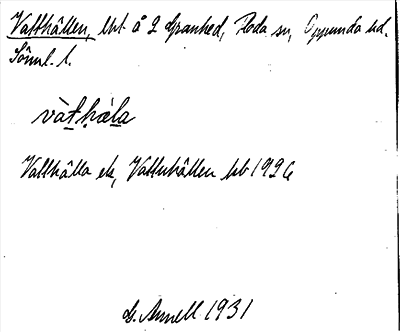 Vatthällen, lht å 2 Granhed, Floda sn, Oppunda hd.
Södml. l.
vàt̠hæ̀l̠a
Vatthälla ek, Vattenhällen hb 1926
G. Annell 1931